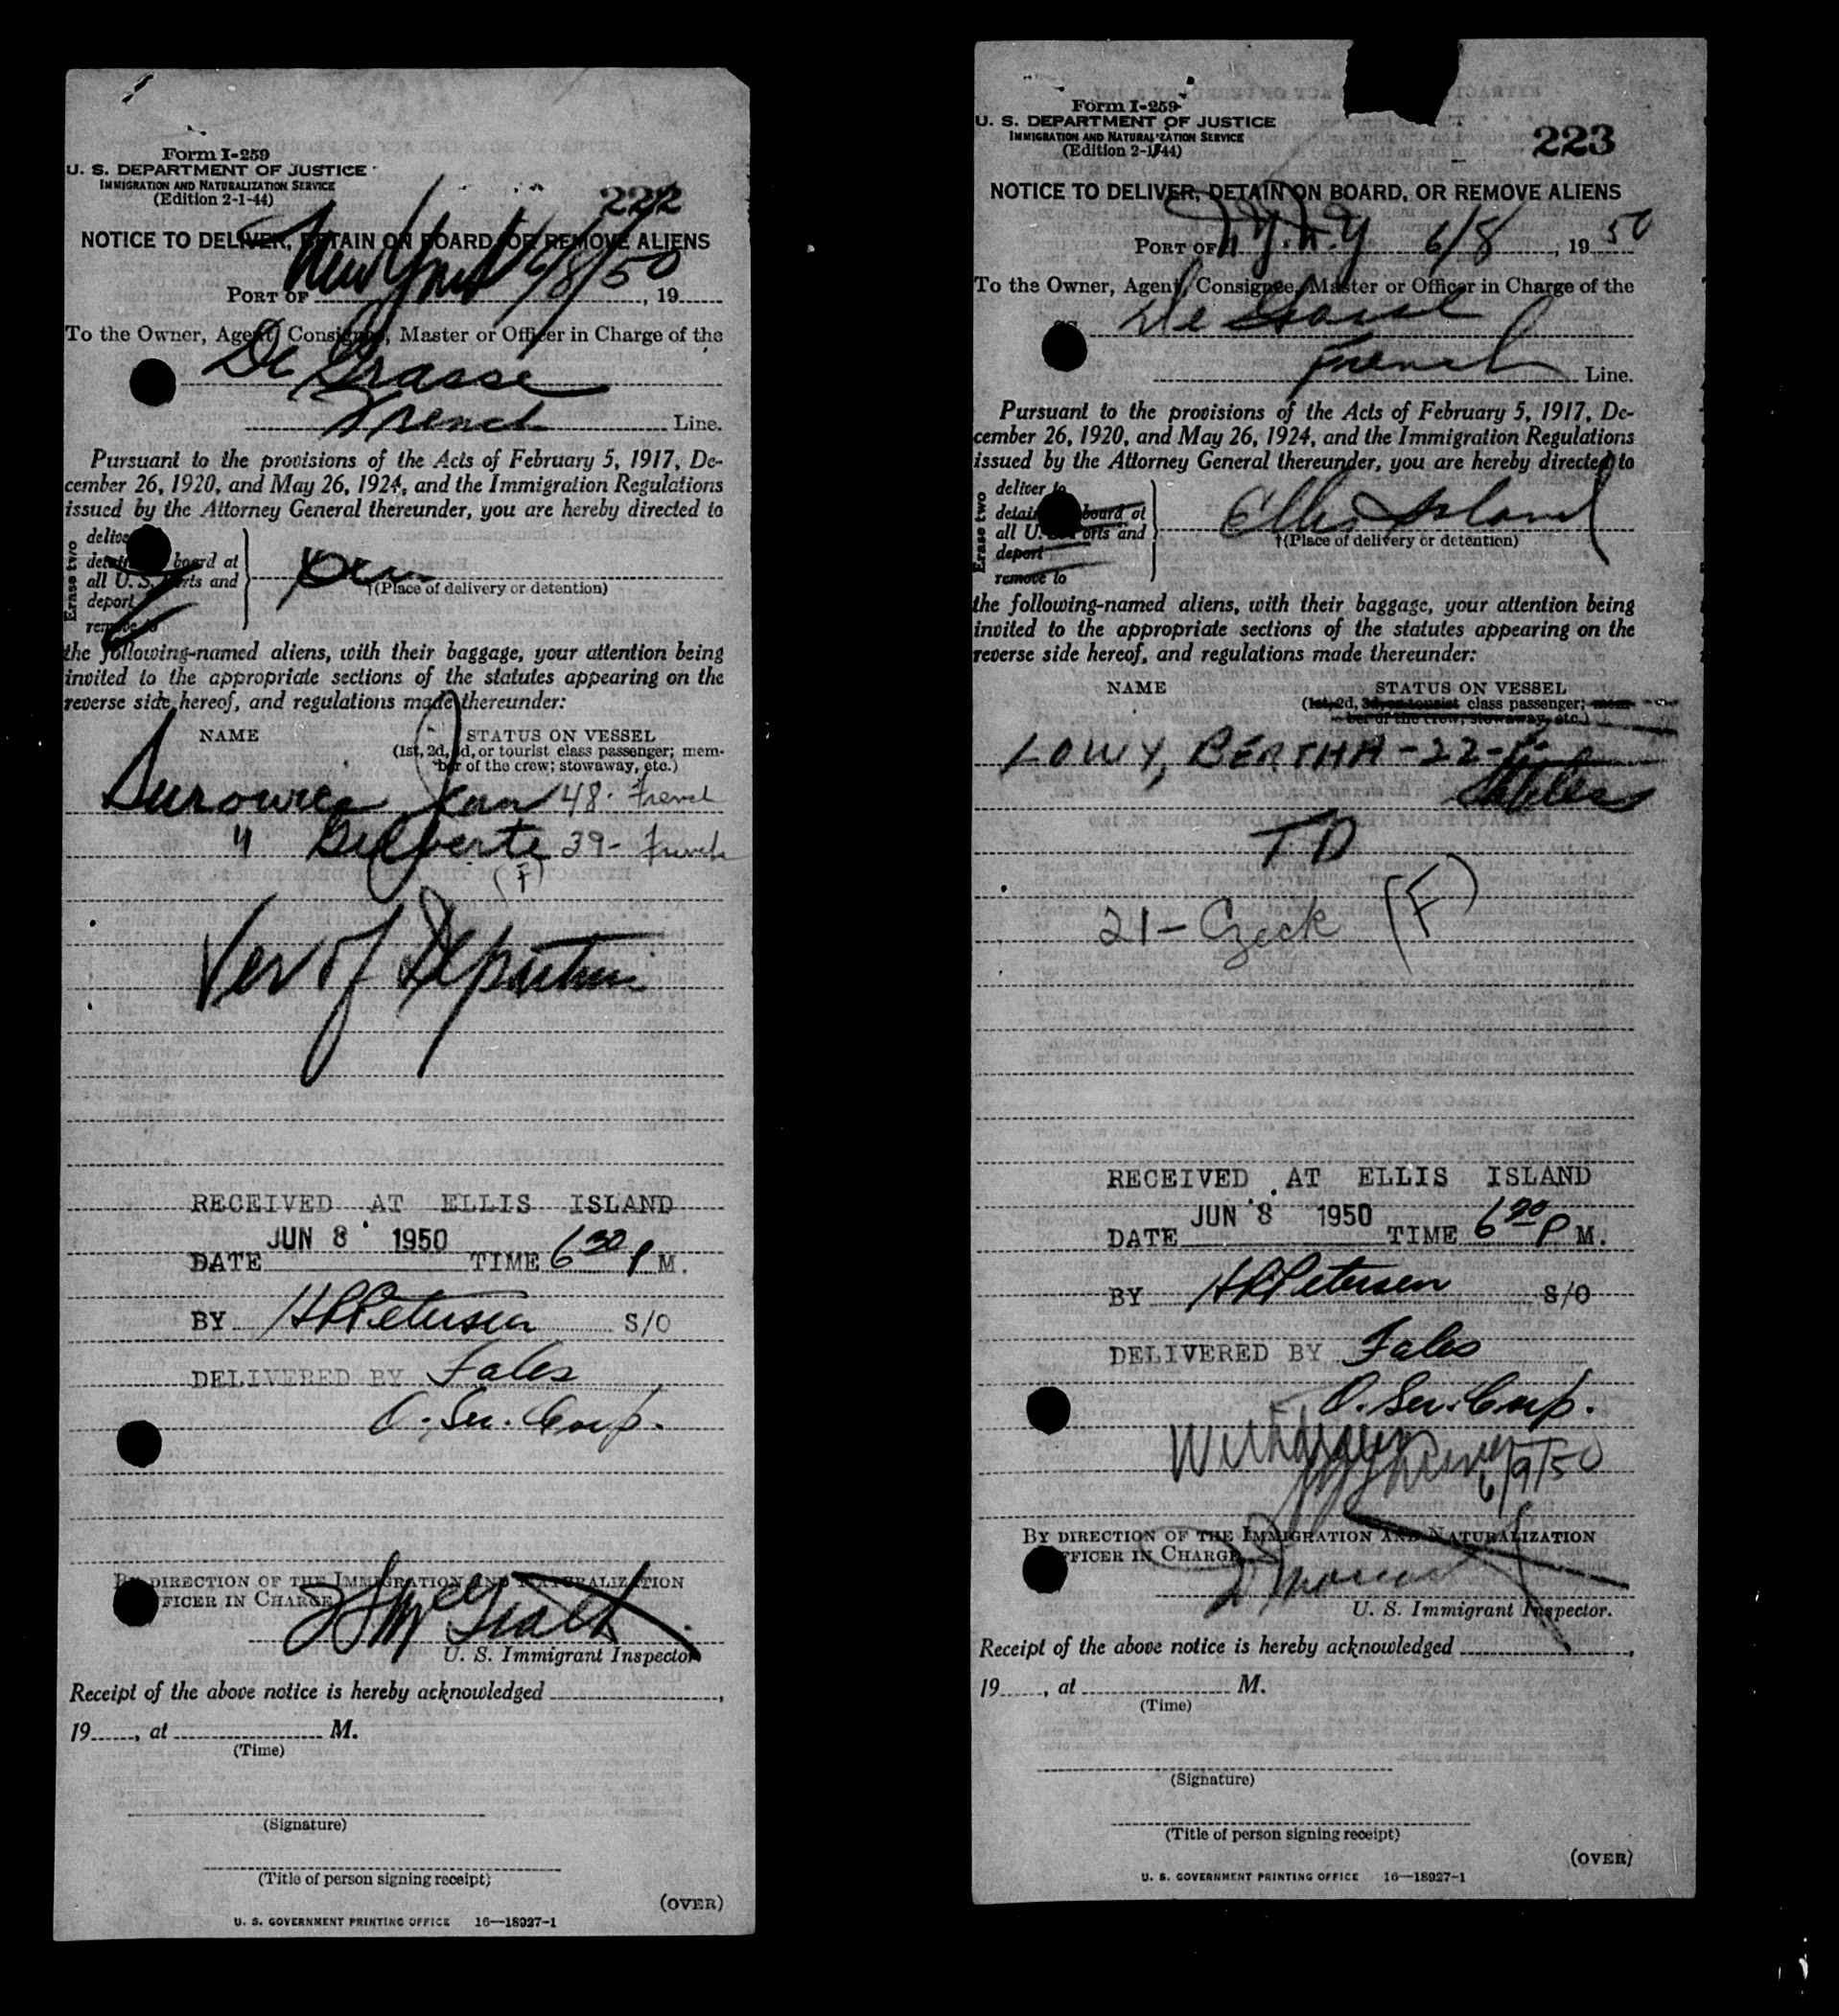 Form I-259
U. S. DEPARTMENT OF JUSTICE
IMMIGRATION AND NATURALIZATION SERVICE
(Edition 2-1-44)
222
NOTICE TO DELIVER, DETAIN ON BOARD, OR REMOVE ALIENS
PORT OF New York 6/8/50, 19
To the Owner, Agent, Consignee, Master or Officer in Charge of the
De Grasse
French Line.
Pursuant to the provisions of the Acts of February 5, 1917, De-
cember 26, 1920, and May 26, 1924, and the Immigration Regulations
issued by the Attorney General thereunder, you are hereby directed to
Erase two
deliver
detain board at
all U. S. ports and
deport
remove to
†(Place of delivery or detention)
the following-named aliens, with their baggage, your attention being
invited to the appropriate sections of the statutes appearing on the
reverse side hereof, and regulations made thereunder:
NAME
STATUS ON VESSEL
(1st, 2d, 3d, or tourist class passenger; mem-
ber of the crew; stowaway, etc.)
Jean 48- French
" Gilberte 39- French
(F)
Ver of Departure
RECEIVED AT ELLIS ISLAND
DATE JUN 8 1950 TIME 6 30 P M.
BY H Petersen S/O
DELIVERED BY Fales
O. Ser. Corp.
BY DIRECTION OF THE IMMIGRATION AND NATURALIZATION
OFFICER IN CHARGE
U. S. Immigrant Inspector
Receipt of the above notice is hereby acknowledged ,
19 , at M.
(Time)
(Signature)
(Title of person signing receipt)
(OVER)
U. S. GOVERNMENT PRINTING OFFICE 16—18927-1
Form I-259
U. S. DEPARTMENT OF JUSTICE
IMMIGRATION AND NATURALIZATION SERVICE
(Edition 2-1-44)
223
NOTICE TO DELIVER, DETAIN ON BOARD, OR REMOVE ALIENS
PORT OF N.Y. N.Y 6/8, 19 50
To the Owner, Agent, Consignee, Master or Officer in Charge of the
SS De Grasse
French Line.
Pursuant to the provisions of the Acts of February 5, 1917, De-
cember 26, 1920, and May 26, 1924, and the Immigration Regulations
issued by the Attorney General thereunder, you are hereby directed to
Erase two
deliver to
detain board at
all U. S. ports and
deport
remove to
Ellis Island
†(Place of delivery or detention)
the following-named aliens, with their baggage, your attention being
invited to the appropriate sections of the statutes appearing on the
reverse side hereof, and regulations made thereunder:
NAME
STATUS ON VESSEL
(1st, 2d, 3d, or tourist class passenger; mem-
ber of the crew; stowaway, etc.)
LOWY, BERTHA - 22 -
TD
21- Czeck (F)
RECEIVED AT ELLIS ISLAND
DATE JUN 8 1950 TIME 6 30 P M.
BY H Petersen S/O
DELIVERED BY Fales
O. Ser. Corp.
Withdrawn 6/9/50
BY DIRECTION OF THE IMMIGRATION AND NATURALIZATION
OFFICER IN CHARGE
U. S. Immigrant Inspector.
Receipt of the above notice is hereby acknowledged ,
19 , at M.
(Time)
(Signature)
(Title of person signing receipt)
(OVER)
U. S. GOVERNMENT PRINTING OFFICE 16—18927-1